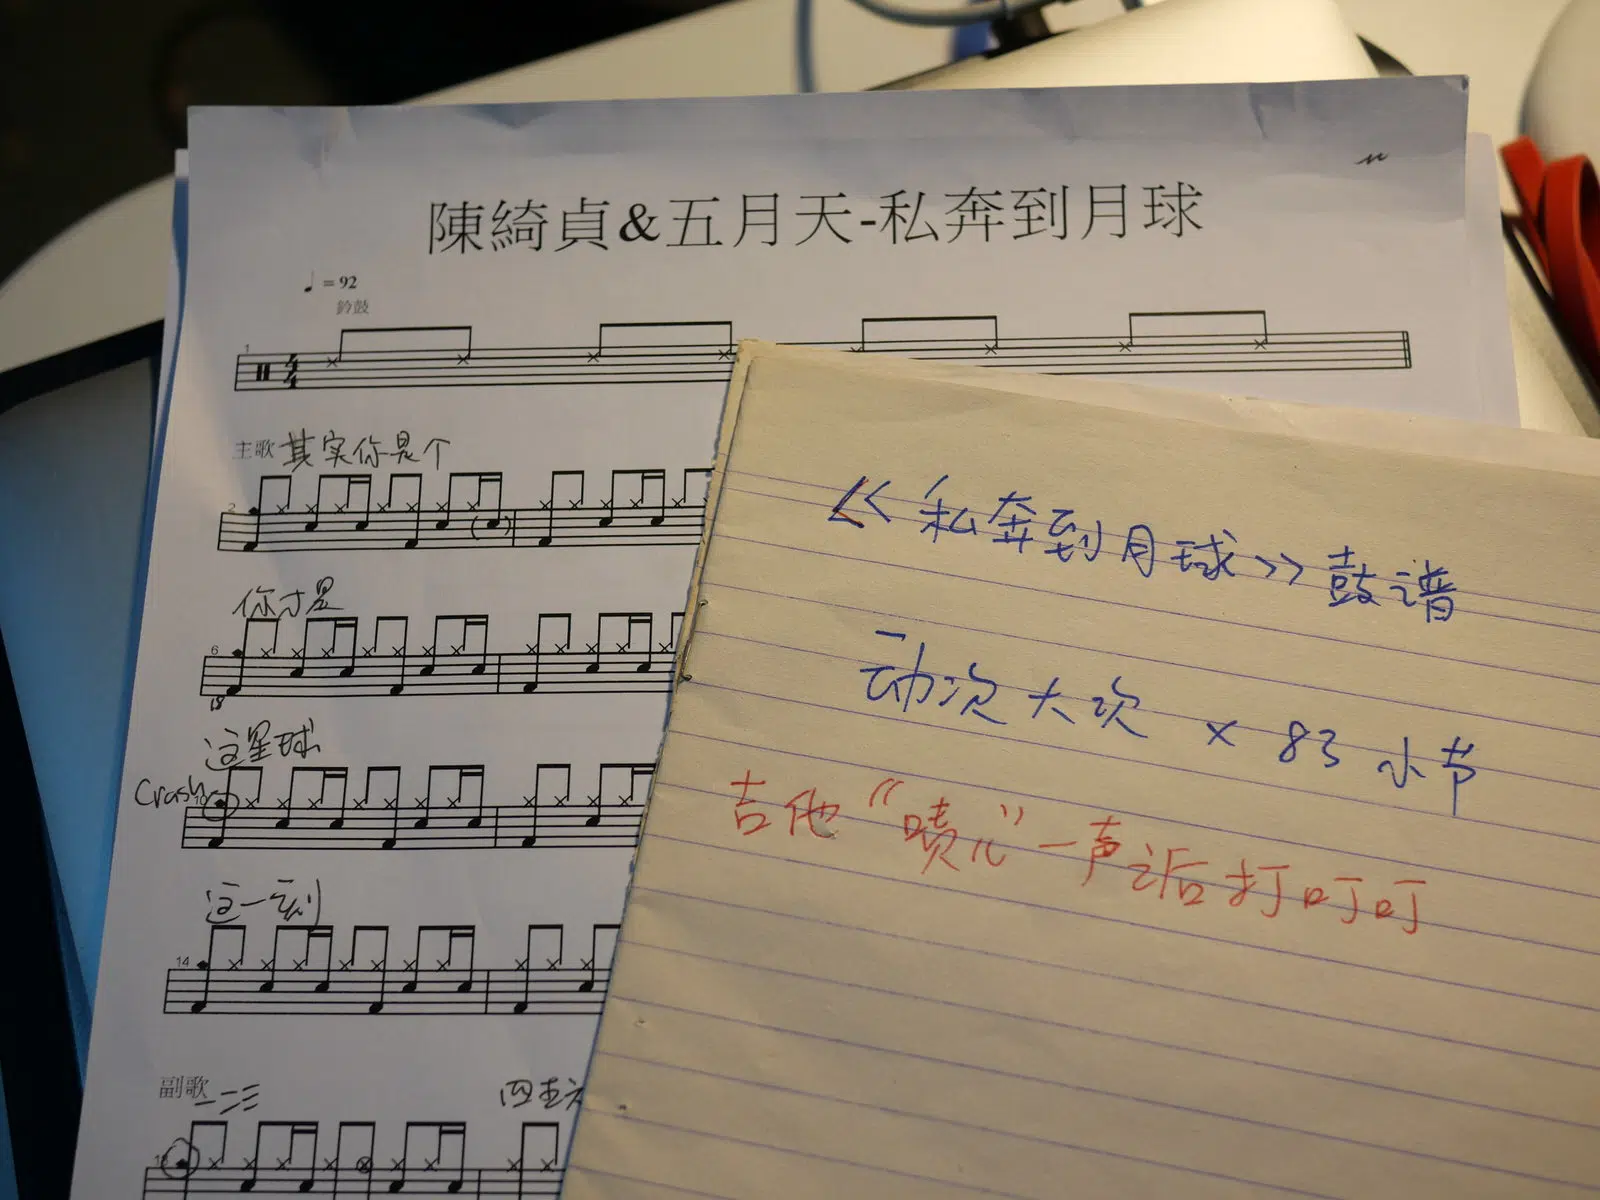 陳綺貞&五月天-私奔到月球
♩ = 92
鈴鼓
1
4/4
主歌 其实你是个
2
你才是
6
18
这星球
Crash
这一刻
14
副歌 一二三
四五六
<<私奔到月球>>鼓谱
动次大次 × 83小节
吉他“啧儿”一声之后打叮叮